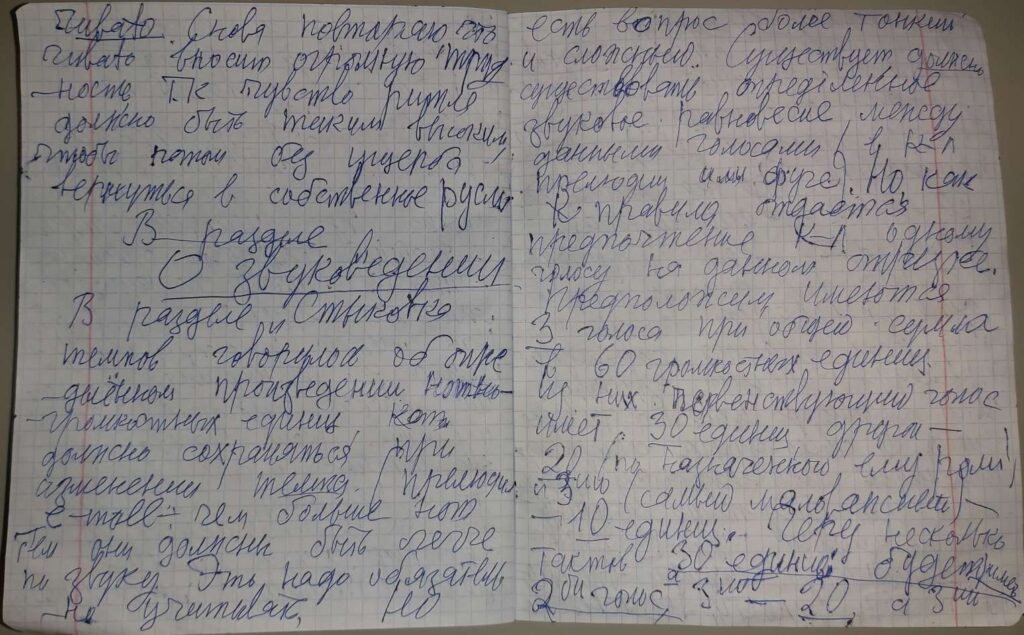 чивато. Снова повторяю это
чивато вносит огромную труд
-ность т.к чувство ритма
должно быть таким высоким,
чтобы потом без ущерба
вернуться в собственное русло
В разделе
О звуковедении
В разделе Стыковка
темпов говорилось об опре
-делённом произведении нотно-
-громкостных единиц, кот.
должно сохраняться при
изменении темпа (прелюдия
e-moll: чем больше нот
тем они должны быть легче
по звуку. Это надо обязатель
-но учитывать, НО
есть вопрос более тонкий
и сложный. Существует должно
существовать определенное
звуковое равновесие между
данными голосами (в к-л
прелюдии или фуге). Но, как
правило отдаётся
предпочтение к-л одному
голосу на данном отрезке.
Предположим имеются
3 голоса при общей сумме
в 60 громкостных единиц.
Из них первенствующий голос
имеет 30 единиц другой —
20 (по назначенной ему роли)
и 3му (самый маловажный) —
— 10 единиц. Через несколько
тактов 30 единиц будет
2ой голос, а 3ий — 20, а 3ий